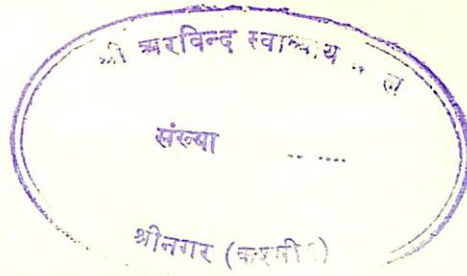 श्री अरविन्द स्वाध्याय
संख्या .. ....
श्रीनगर (कश्मीर)